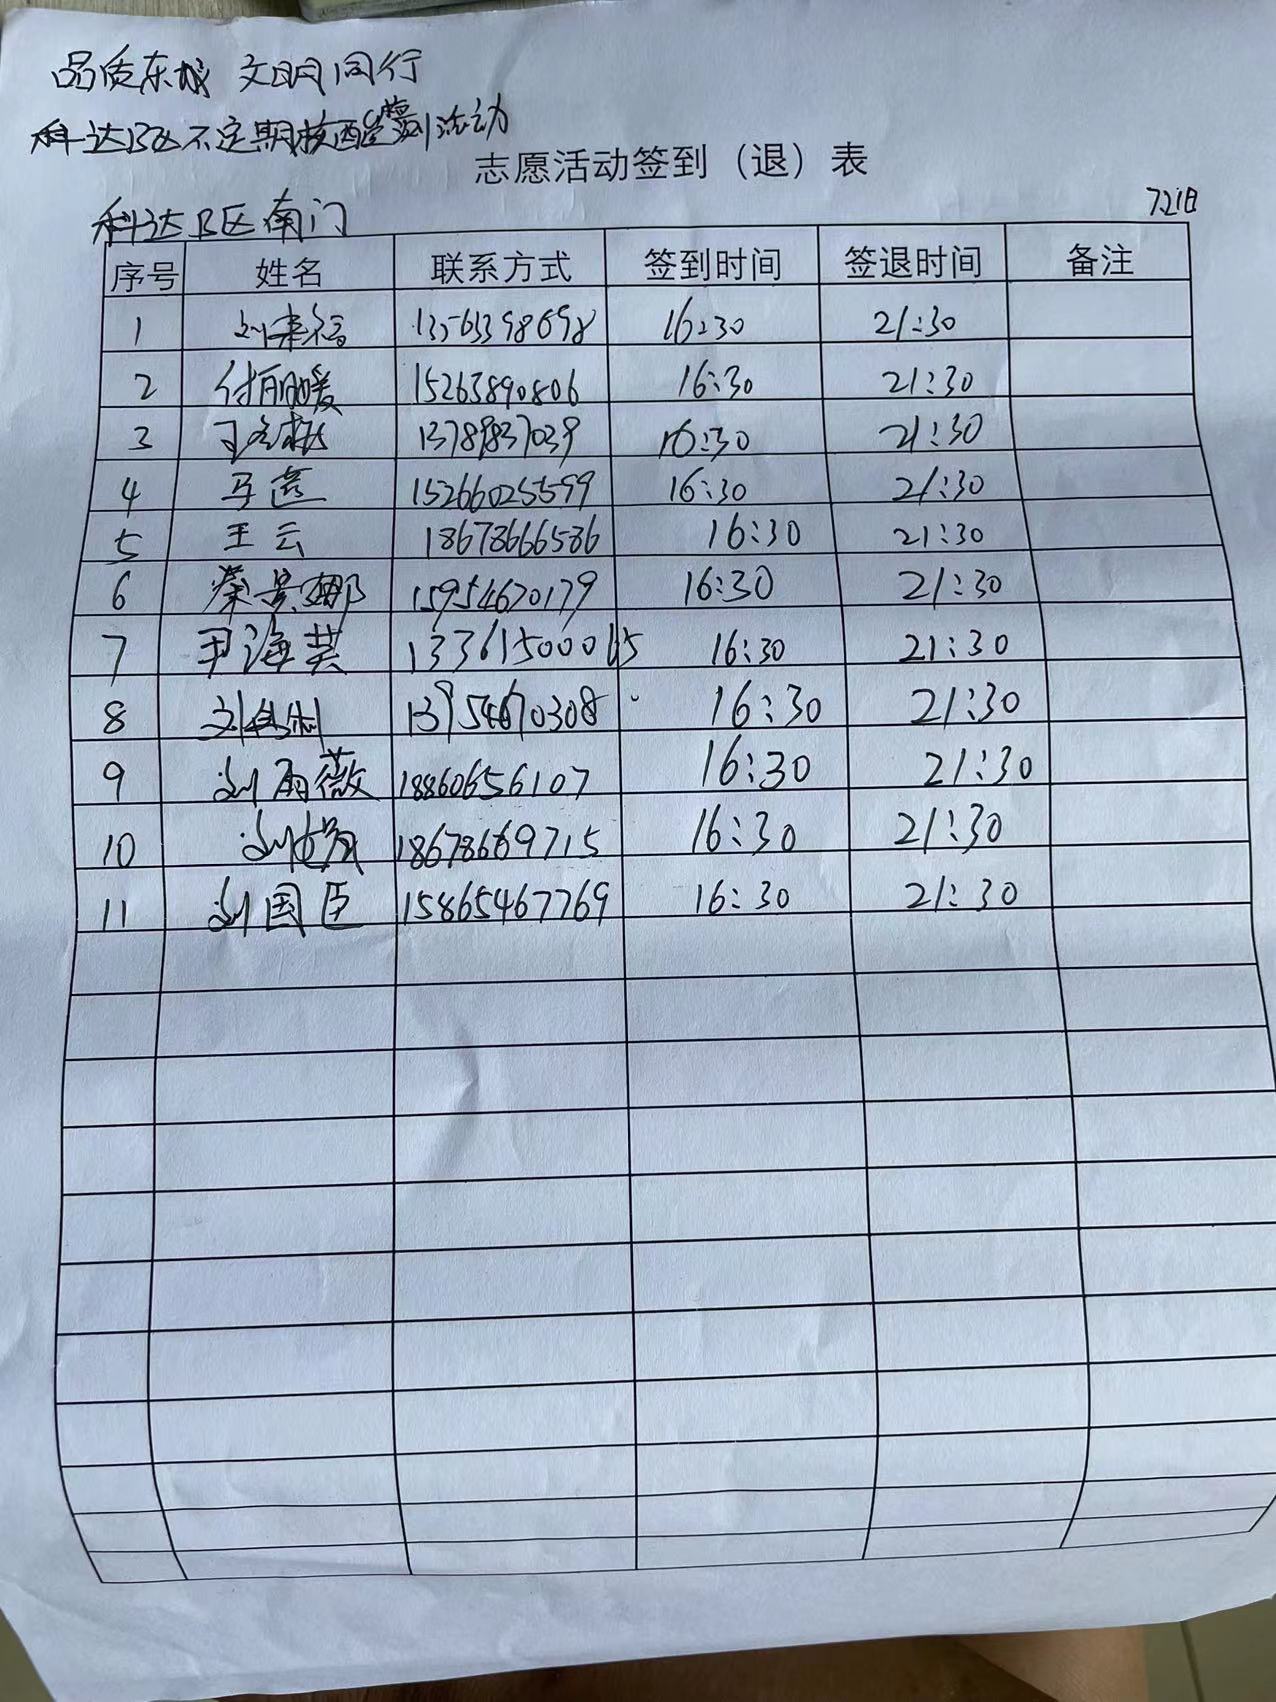 品质东城 文明同行
科达B区不定期核酸 活动
志愿活动签到（退）表
科达B区南门 7.21日
序号 姓名 联系方式 签到时间 签退时间 备注
1 16:30 21:30
2 付丽暖 15263890806 16:30 21:30
3 13789837039 16:30 21:30
4 15266025599 16:30 21:30
5 王云 18678666586 16:30 21:30
6 荣景娜 15954670179 16:30 21:30
7 尹海英 16:30 21:30
8 13954670308 16:30 21:30
9 刘雨薇 18860656107 16:30 21:30
10 18678669715 16:30 21:30
11 刘国臣 15865467769 16:30 21:30